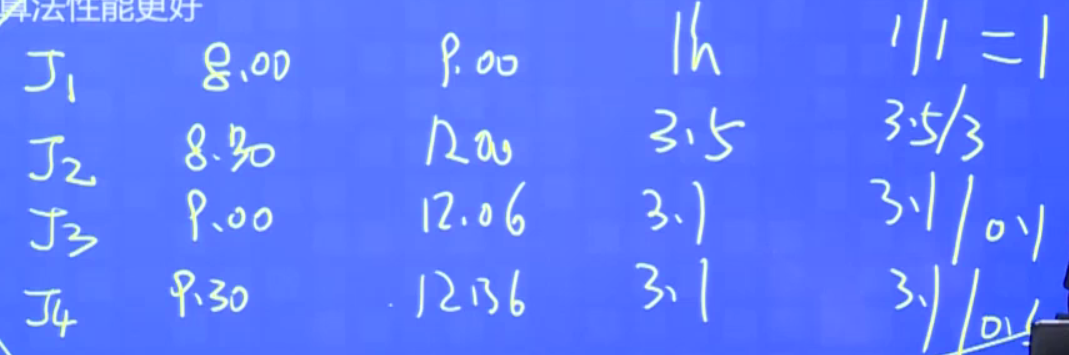 算法性能更好
J1 8.00 9.00 1h 1/1 = 1
J2 8.30 12.00 3.5 3.5/3
J3 9.00 12.06 3.1 3.1/0.1
J4 9.30 12.36 3.1 3.1/0.5